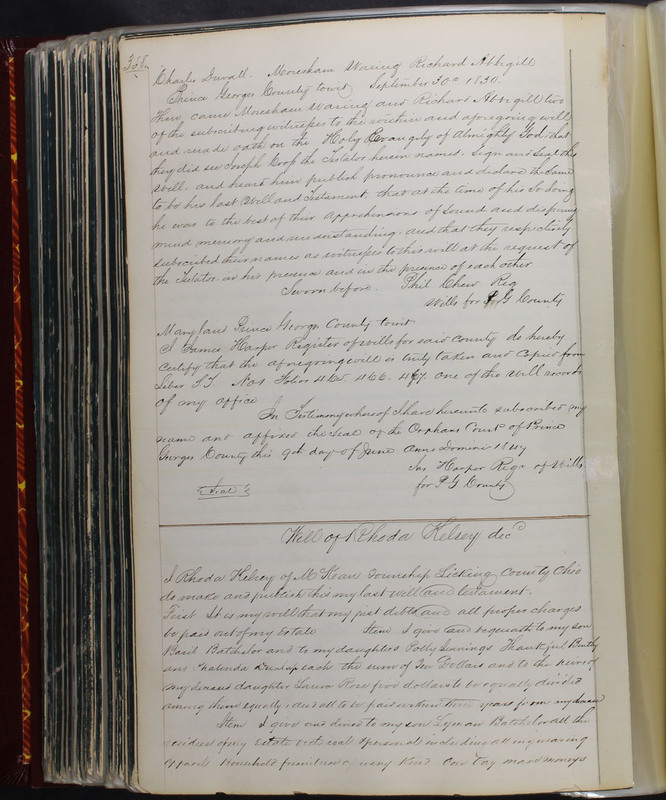 358
Charles Duvall. Moresham Waring Richard Abbigill
Prince Georges County towit September 30th 1830.
Then came Moresham Waring and Richard Abbigill two
of the subscribing witnesses to the within and aforegoing will
and made oath on the Holy Evangely of Almighty God that
they did see Joseph the Testator herein named. Sign and Seal this
will. and heard him publish pronounce and declare the same
to be his last Will and Testament, that at the time of his So doing
he was to the best of their apprehensions of Sound and disposing
mind memory and understanding. and that they respectively
subscribed their names as witnesses to this will at the request of
the Testator. in his presence and in the presence of each other
Sworn before. Phil Chew Reg
Wills for P G County
Maryland Prince Georges County towit
I James Harper Register of Wills for said County do hereby
Certify that the aforegoing will is truly taken and Copied from
Liber T.T. Folios 465. 466. 467. one of the Will records
of my office
In Testimony whereof I have hereunto subscribed my
name and affixed the Seal of the Orphans Court of Prince
Georges County this 9th day of June Anno Domini
Jas Harper Regr of Wills
for P G County
Seal
Will of Rhoda Kelsey decd
I Rhoda Kelsey of McKean Township Licking County Ohio
do make and publish this my last will and testament.
First It is my will that my just debts and all proper charges
be paid out of my Estate Item I give and bequeath to my son
Basil Batchelor and to my daughters Polly Jennings Thankful Bently
and Dunlap each the sum of Ten Dollars and to the heirs of
my deceased daughter Laura Rose five dollars to be equally divided
among them equally and all to be paid within three years from my decease
Item I give and devise to my son Lyman Batchelor all the
residue of my estate both real & personal including all my wearing
apparel household furniture of every kind Cow Hay mare moneys